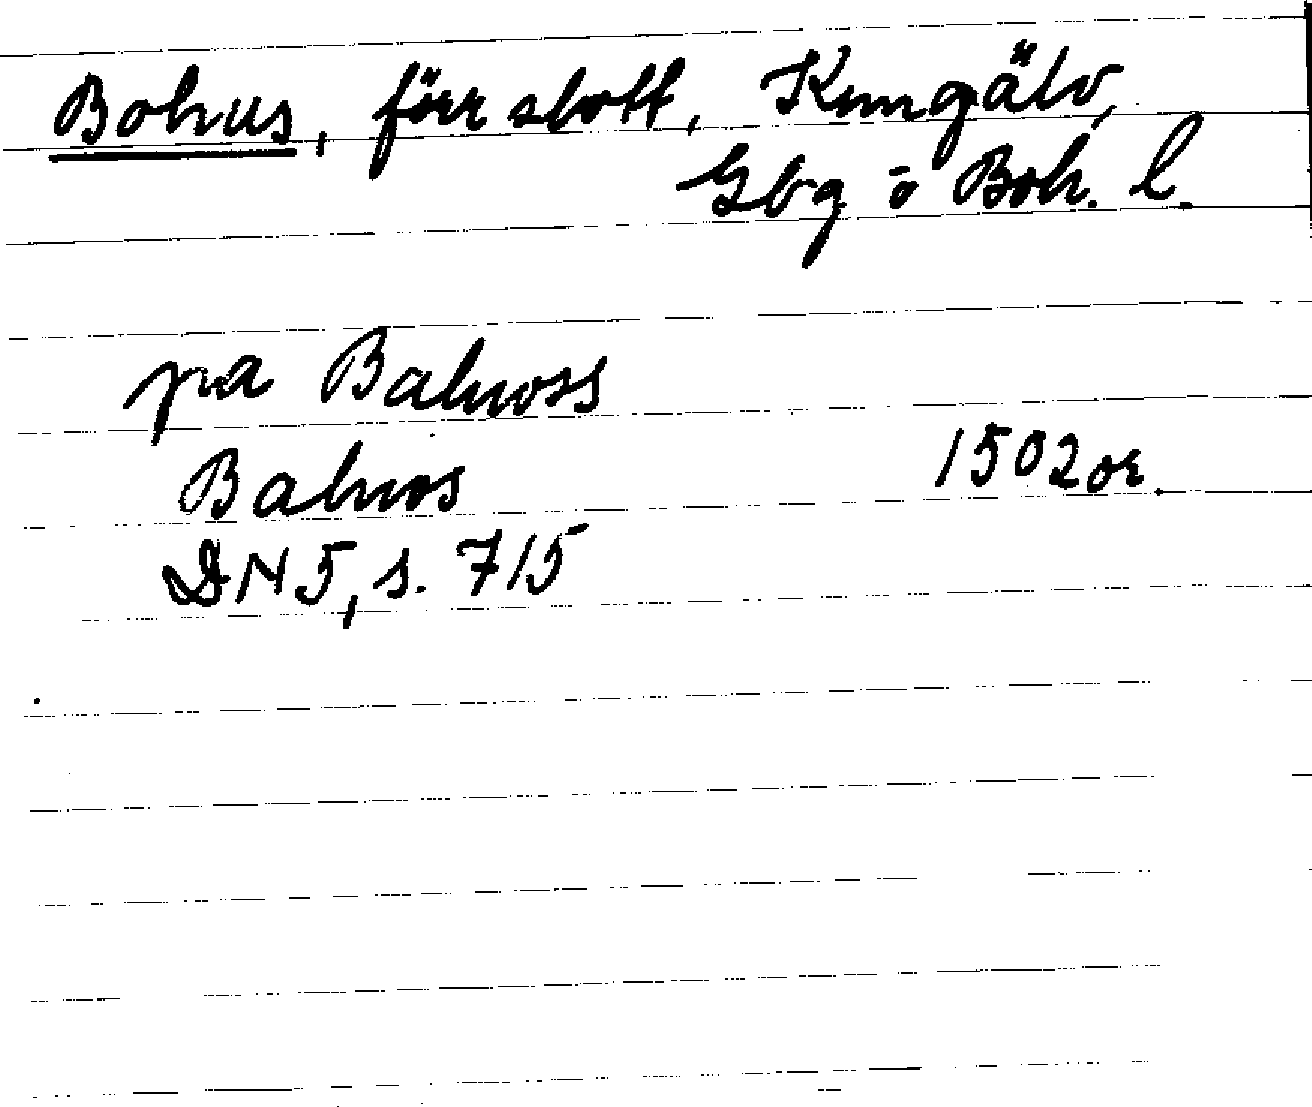 Bohus, förr slott, Kungälv,
Gbg o Boh. l.
pa Bahuoss
Bahuos 1502 or.
DN 5, s. 715